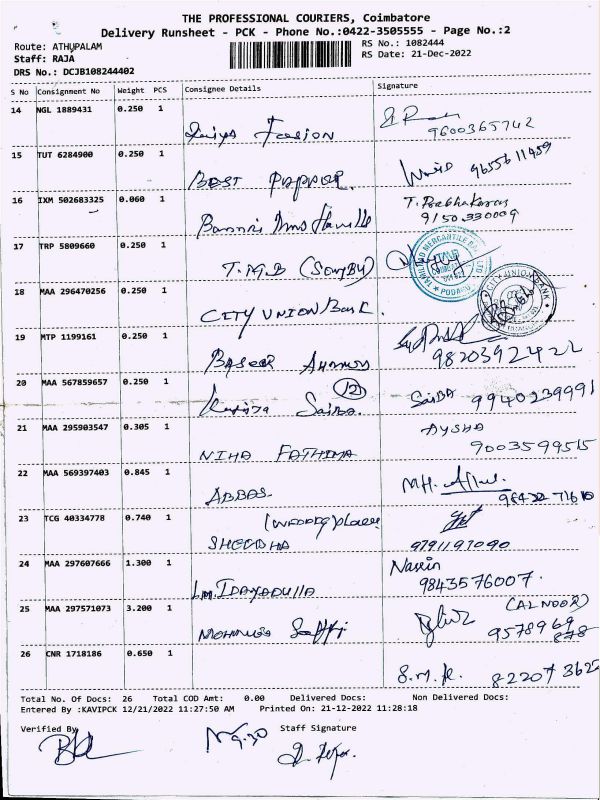 THE PROFESSIONAL COURIERS, Coimbatore
Delivery Runsheet - PCK - Phone No.:0422-3505555 - Page No.:2
Route: ATHUPALAM RS No.: 1082444
Staff: RAJA RS Date: 21-Dec-2022
DRS No.: DCJB108244402
S No Consignment No Weight PCS Consignee Details Signature
14 NGL 1889431 0.250 1
9600365742
15 TUT 6284900 0.250 1 BEST 9655611459
16 IXM 502683325 0.060 1 T. Prabhakaran
9150330009
17 TRP 5809660 0.250 1 T.M.B
TAMILNAD MERCANTILE BANK LTD
18 MAA 296470256 0.250 1 CITY UNION Bank.
CITY UNION BANK
19 MTP 1199161 0.250 1 BASEER AHAMED
9820392422
20 MAA 567859657 0.250 1 (12) Saiba. SaiBA 9940239991
21 MAA 295903547 0.305 1 NIHA FATHIMA AYSHA
9003599515
22 MAA 569397403 0.845 1 ABBAS M.H.
23 TCG 40334778 0.740 1
9791197090
24 MAA 297607666 1.300 1 I.M. IDAYADULLA
9843576007.
25 MAA 297571073 3.200 1 (AL NOOR)
9578969
878
26 CNR 1718186 0.650 1 S.M.K. 82207 3622
Total No. Of Docs: 26 Total COD Amt: 0.00 Delivered Docs: Non Delivered Docs:
Entered By :KAVIPCK 12/21/2022 11:27:50 AM Printed On: 21-12-2022 11:28:18
Verified By Staff Signature
9.30